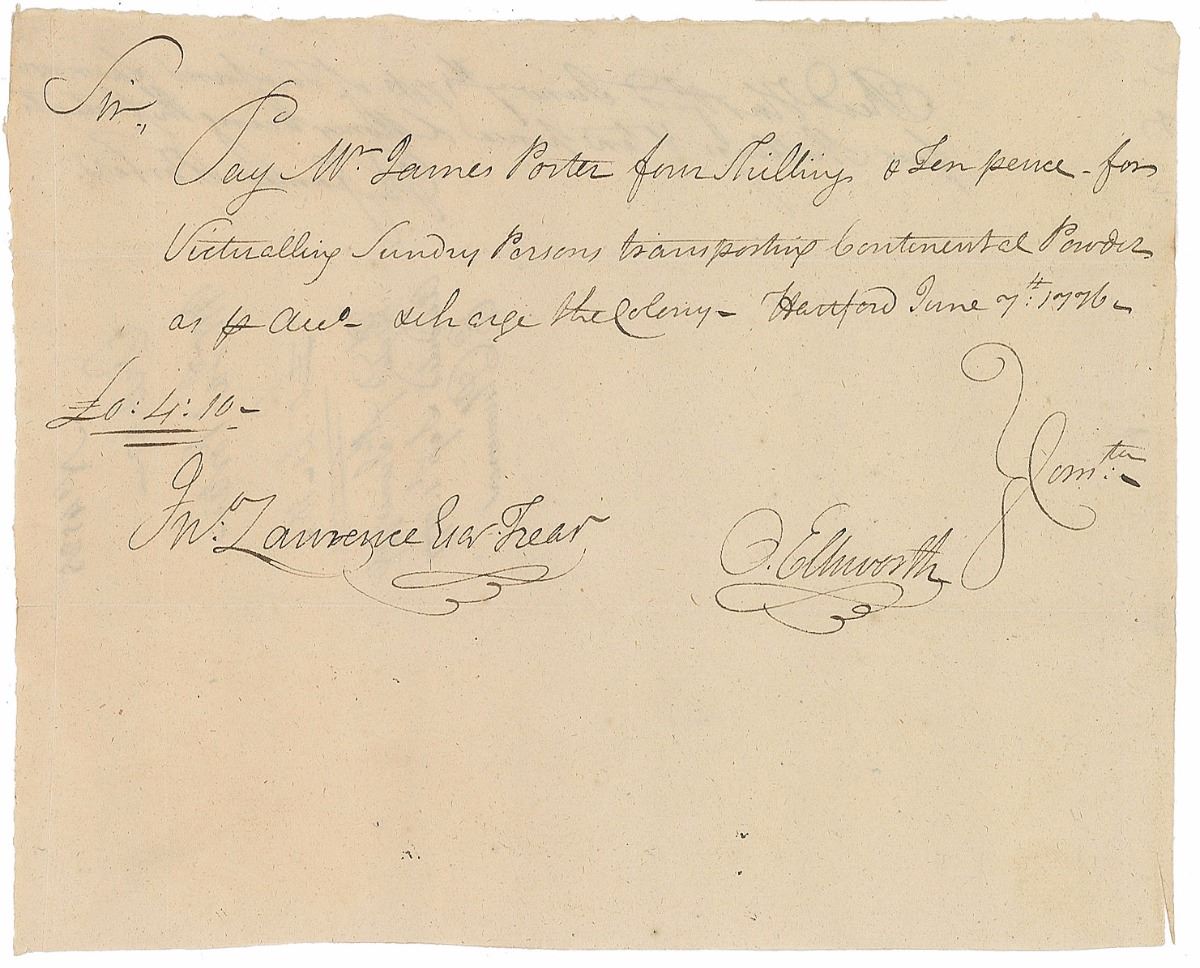 Sir,,
Pay Mr James Porter four Shillings & Ten pence - for
Victualling Sundry Persons transporting Continental Powder
as pr Acct - & charge the Colony - Hartford June 7th: 1776 -
£0: 4: 10 -
Comtee: -
Jno: Lawrence Esqr Trear
O. Ellsworth